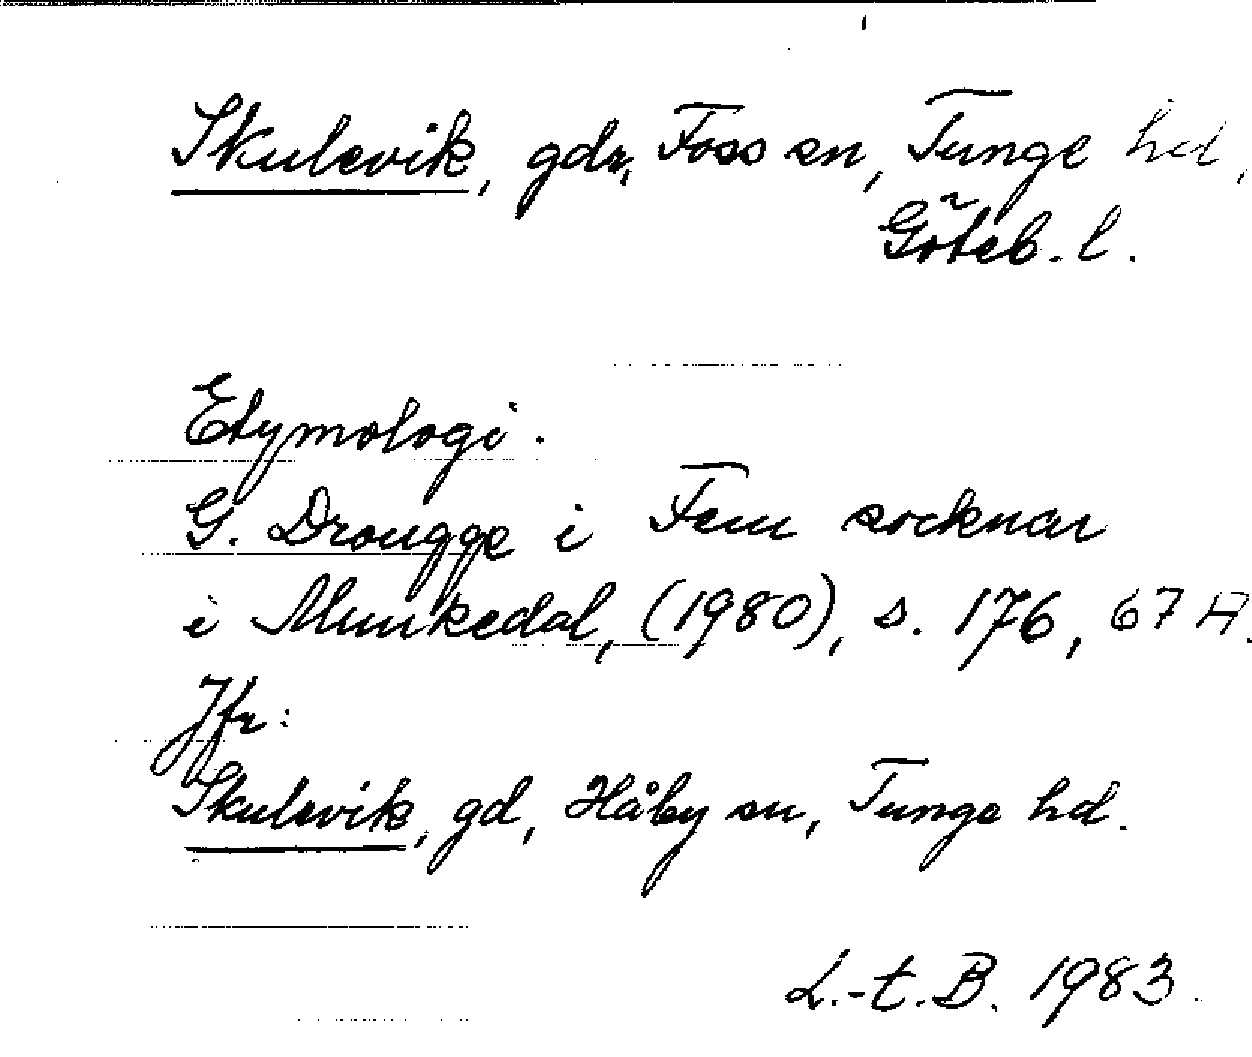 Skulevik, gdr, Foss sn, Tunge hd,
Göteb. l.
Etymologi.
G. Drougge i Fem socknar
i Munkedal, (1980), s. 176, 67 A.
Jfr:
Skulevik, gd, Håby sn, Tunge hd.
L.-t. B. 1983.